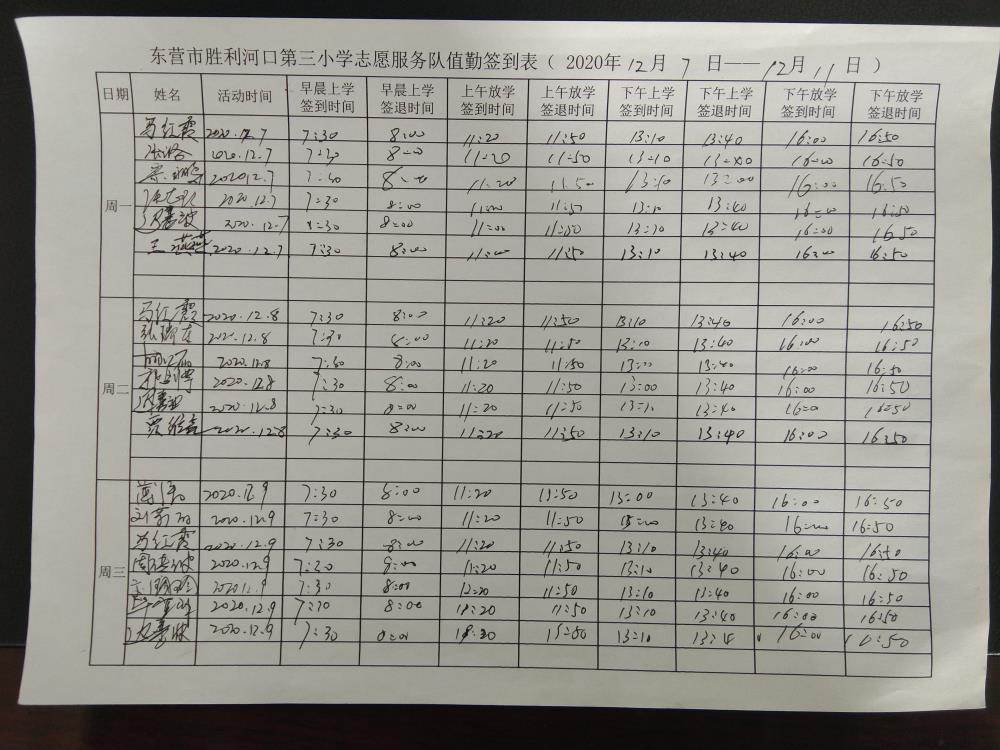 东营市胜利河口第三小学志愿服务队值勤签到表（ 2020年 12月 7 日——12月 11 日 ）
日期 姓名 活动时间 早晨上学签到时间 早晨上学签退时间 上午放学签到时间 上午放学签退时间 下午上学签到时间 下午上学签退时间 下午放学签到时间 下午放学签退时间
周一
马红霞 2020.12.7 7:30 8:00 11:20 11:50 13:10 13:40 16:00 16:50
2020.12.7 7:30 8:00 11:20 11:50 13:10 13:40 16:00 16:50
2020.12.7 7:30 8:00 11:20 11:50 13:10 13:00 16:00 16:50
2020.12.7 7:30 8:00 11:00 11:50 13:10 13:40 16:00 16:50
2020.12.7 8:00 11:00 11:50 13:10 13:40 16:00 16:50
王燕燕 2020.12.7 7:30 8:00 11:00 11:50 13:10 13:40 16:00 16:50
周二
马红霞 2020.12.8 7:30 8:00 11:20 11:50 13:10 13:40 16:00 16:50
2020.12.8 7:30 8:00 11:20 11:50 13:10 13:40 16:00 16:50
2020.12.8 7:30 8:00 11:20 11:50 13:00 13:40 16:00 16:50
2020.12.8 7:30 8:00 11:20 11:50 13:00 13:40 16:00 16:50
2020.12.8 7:30 8:00 11:20 11:50 13:10 13:40 16:00 16:50
2020.12.8 7:30 8:00 11:20 11:50 13:10 13:40 16:00 16:50
周三
2020.12.9 7:30 8:00 11:20 11:50 13:00 13:40 16:00 16:50
2020.12.9 7:30 8:00 11:20 11:50 13:00 13:40 16:00 16:50
马红霞 2020.12.9 7:30 8:00 11:20 11:50 13:10 13:40 16:00 16:50
2020.12.9 7:30 8:00 11:20 11:50 13:10 13:40 16:00 16:50
2020.12.9 7:30 8:00 12:20 11:50 13:10 13:40 16:00 16:50
2020.12.9 7:30 8:00 11:20 11:50 13:10 13:40 16:00 16:50
2020.12.9 7:30 8:00 13:10 16:00